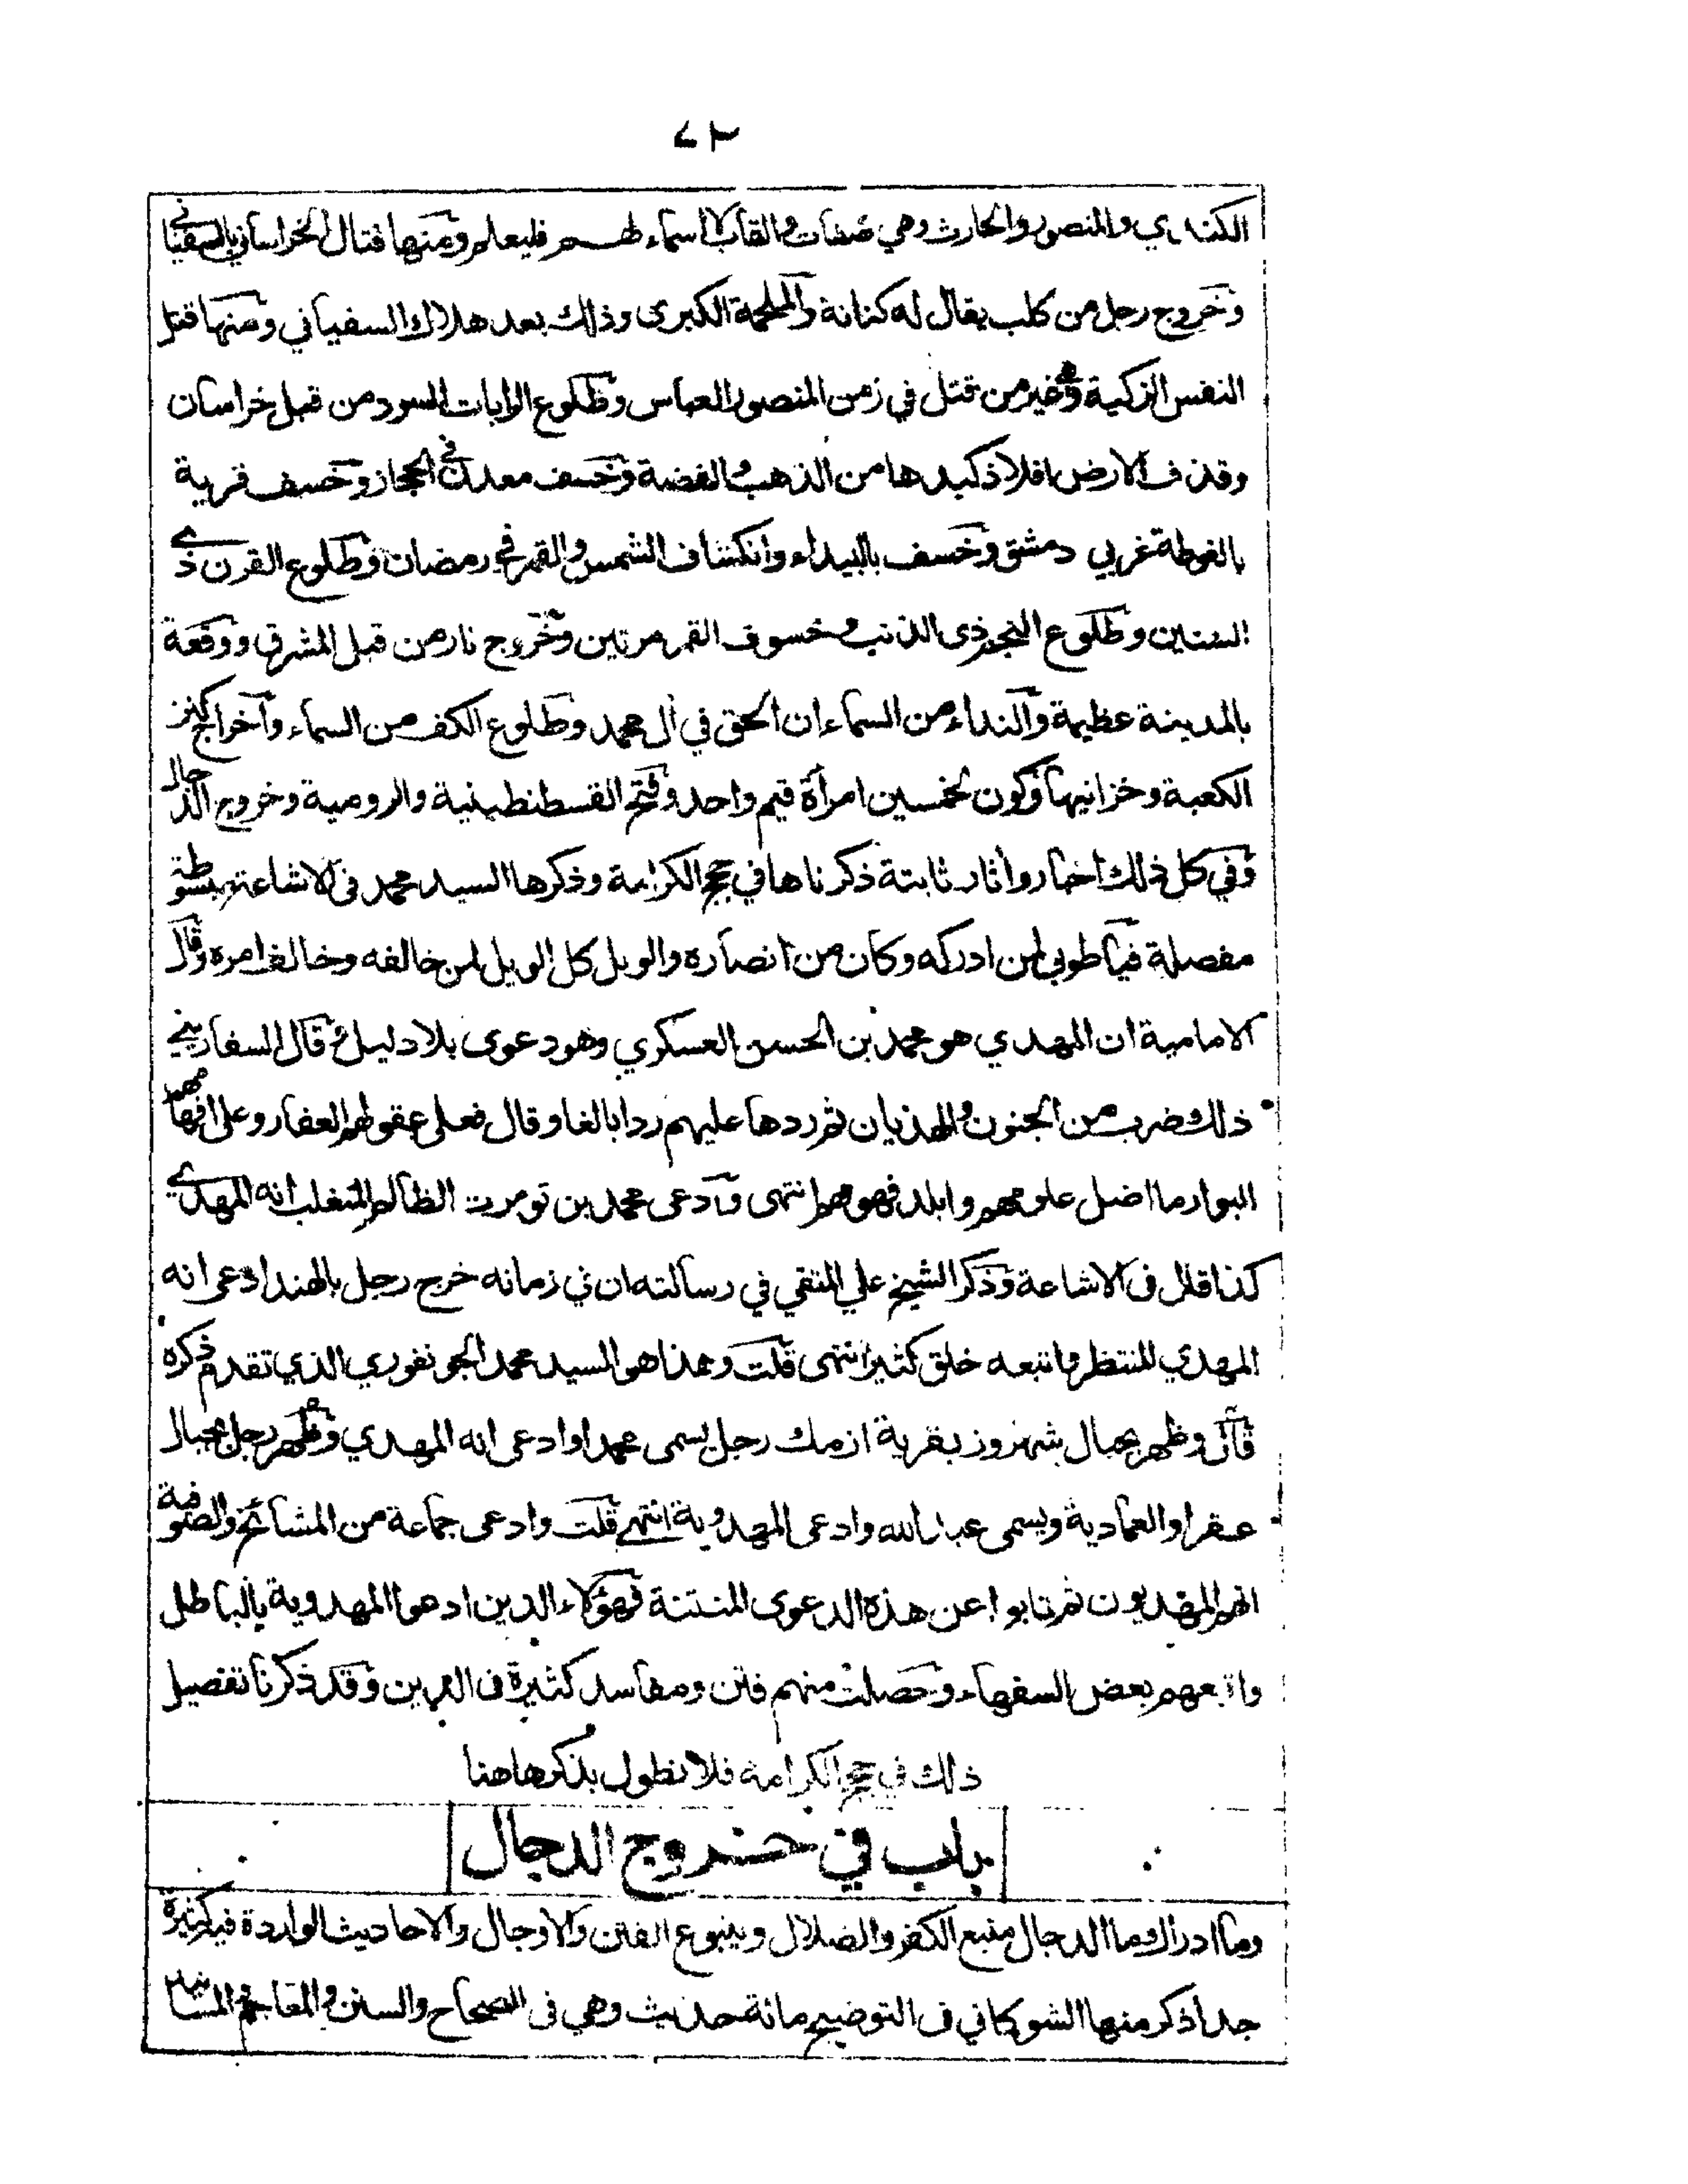 ٧٢
الكندي والمنصور والحارث وهي صفات والقاب لا اسماء لهم فليعلم ومنها قتال الخراساني بالسفياني
وخروج رجل من كلب يقال له كنانة والملحمة الكبرى وذلك بعد هلاك السفياني ومنها قتل
النفس الزكية وهو غير من قتل في زمن المنصور العباس وطلوع الرايات السود من قبل خراسان
وقذف الارض افلاذ كبدها من الذهب والفضة وخسف معدن في الحجاز وخسف قرية
بالغوطة غربي دمشق وخسف بالبيداء وانكشاف الشمس والقمر في رمضان وطلوع القرن ذي
السنين وطلوع النجم ذى الذنب وخسوف القمر مرتين وخروج نار من قبل المشرق ووقعة
بالمدينة عظيمة والنداء من السماء ان الحق في ال محمد وطلوع الكف من السماء واخراج كنز
الكعبة وخزانيها وكون لخمسين امرأة قيم واحد وفتح القسطنطينية والرومية وخروج الدجال
وفي كل ذلك اخبار وآثار ثابتة ذكرناها في حجج الكرامة وذكرها السيد محمد فى الاشاعة مبسوطة
مفصلة فيا طوبى لمن ادركه وكان من انصاره والويل كل الويل لمن خالفه وخالف امره وقال
الامامية ان المهدي هو محمد بن الحسن العسكري وهو دعوى بلا دليل قال السفاريني
ذلك ضرب من الجنون والهذيان ثم ردها عليهم ردا بالغا وقال فعلى عقولهم العفار وعلى افهامهم
البوار ما اضل علومهم وابلد فهومهم انتهى وادعى محمد بن تومرت الظالم المتغلب انه المهدي
كذا قال فى الاشاعة وذكر الشيخ علي المتقي في رسالته ان في زمانه خرج رجل بالهند ادعى انه
المهدي المنتظر واتبعه خلق كثير انتهى قلت وهذا هو السيد محمد الجونفوري الذي تقدم ذكره
قال وظهر بجبال شهزوز بقرية ازمك رجل يسمى محمدا وادعى انه المهدي وظهر رجل بجبال
عقرا والعمادية ويسمى عبد الله وادعى المهدوية انتهى قلت وادعى جماعة من المشائخ والصوفية
انهم المهديون ثم تابوا عن هذه الدعوى المنتنة فهؤلاء الذين ادعوا المهدوية بالباطل
واتبعهم بعض السفهاء وحصلت منهم فتن ومفاسد كثيرة فى الدين وقد ذكرنا تفصيل
ذلك في حجج الكرامة فلا نطول بذكرها هنا
باب في خروج الدجال
وما ادراك وما الدجال منبع الكفر والضلال وينبوع الفتن والاوجال والاحاديث الواردة فيه كثيرة
جدا ذكر منها الشوكاني فى التوضيح مائة حديث وهي فى الصحاح والسنن والمعاجم والمسانيد